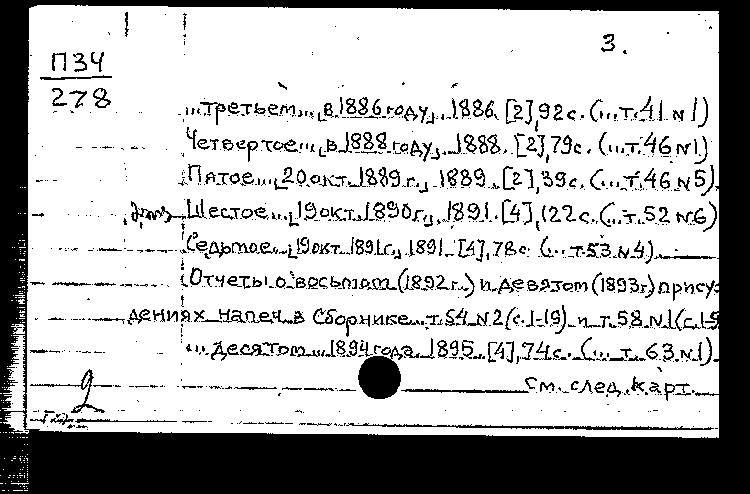 3.
ПЗ4
278
...третьем... в 1886 году. 1886. [2], 92 с. (...т. 41 № 1)
Четвертое... в 1888 году. 1888. [2], 79 с. (...т. 46 № 1)
Пятое... 20 окт. 1889 г. 1889. [2], 39 с. (...т. 46 № 5)
Шестое... 19 окт. 1890 г. 1891. [4], 122 с. (...т. 52 № 6)
Седьмое... 19 окт. 1891 г. 1891. [4], 78 с. (...т. 53 № 4)
Отчеты о восьмом (1892 г.) и девятом (1893 г) прису-
дениях напеч. в Сборнике... т. 54 № 2 (с. 1-19) и т. 58 № 1 (с. 1-9
... десятом... 1894 года. 1895. [4], 74 с. (...т. 63 № 1)
См. след. карт.
2